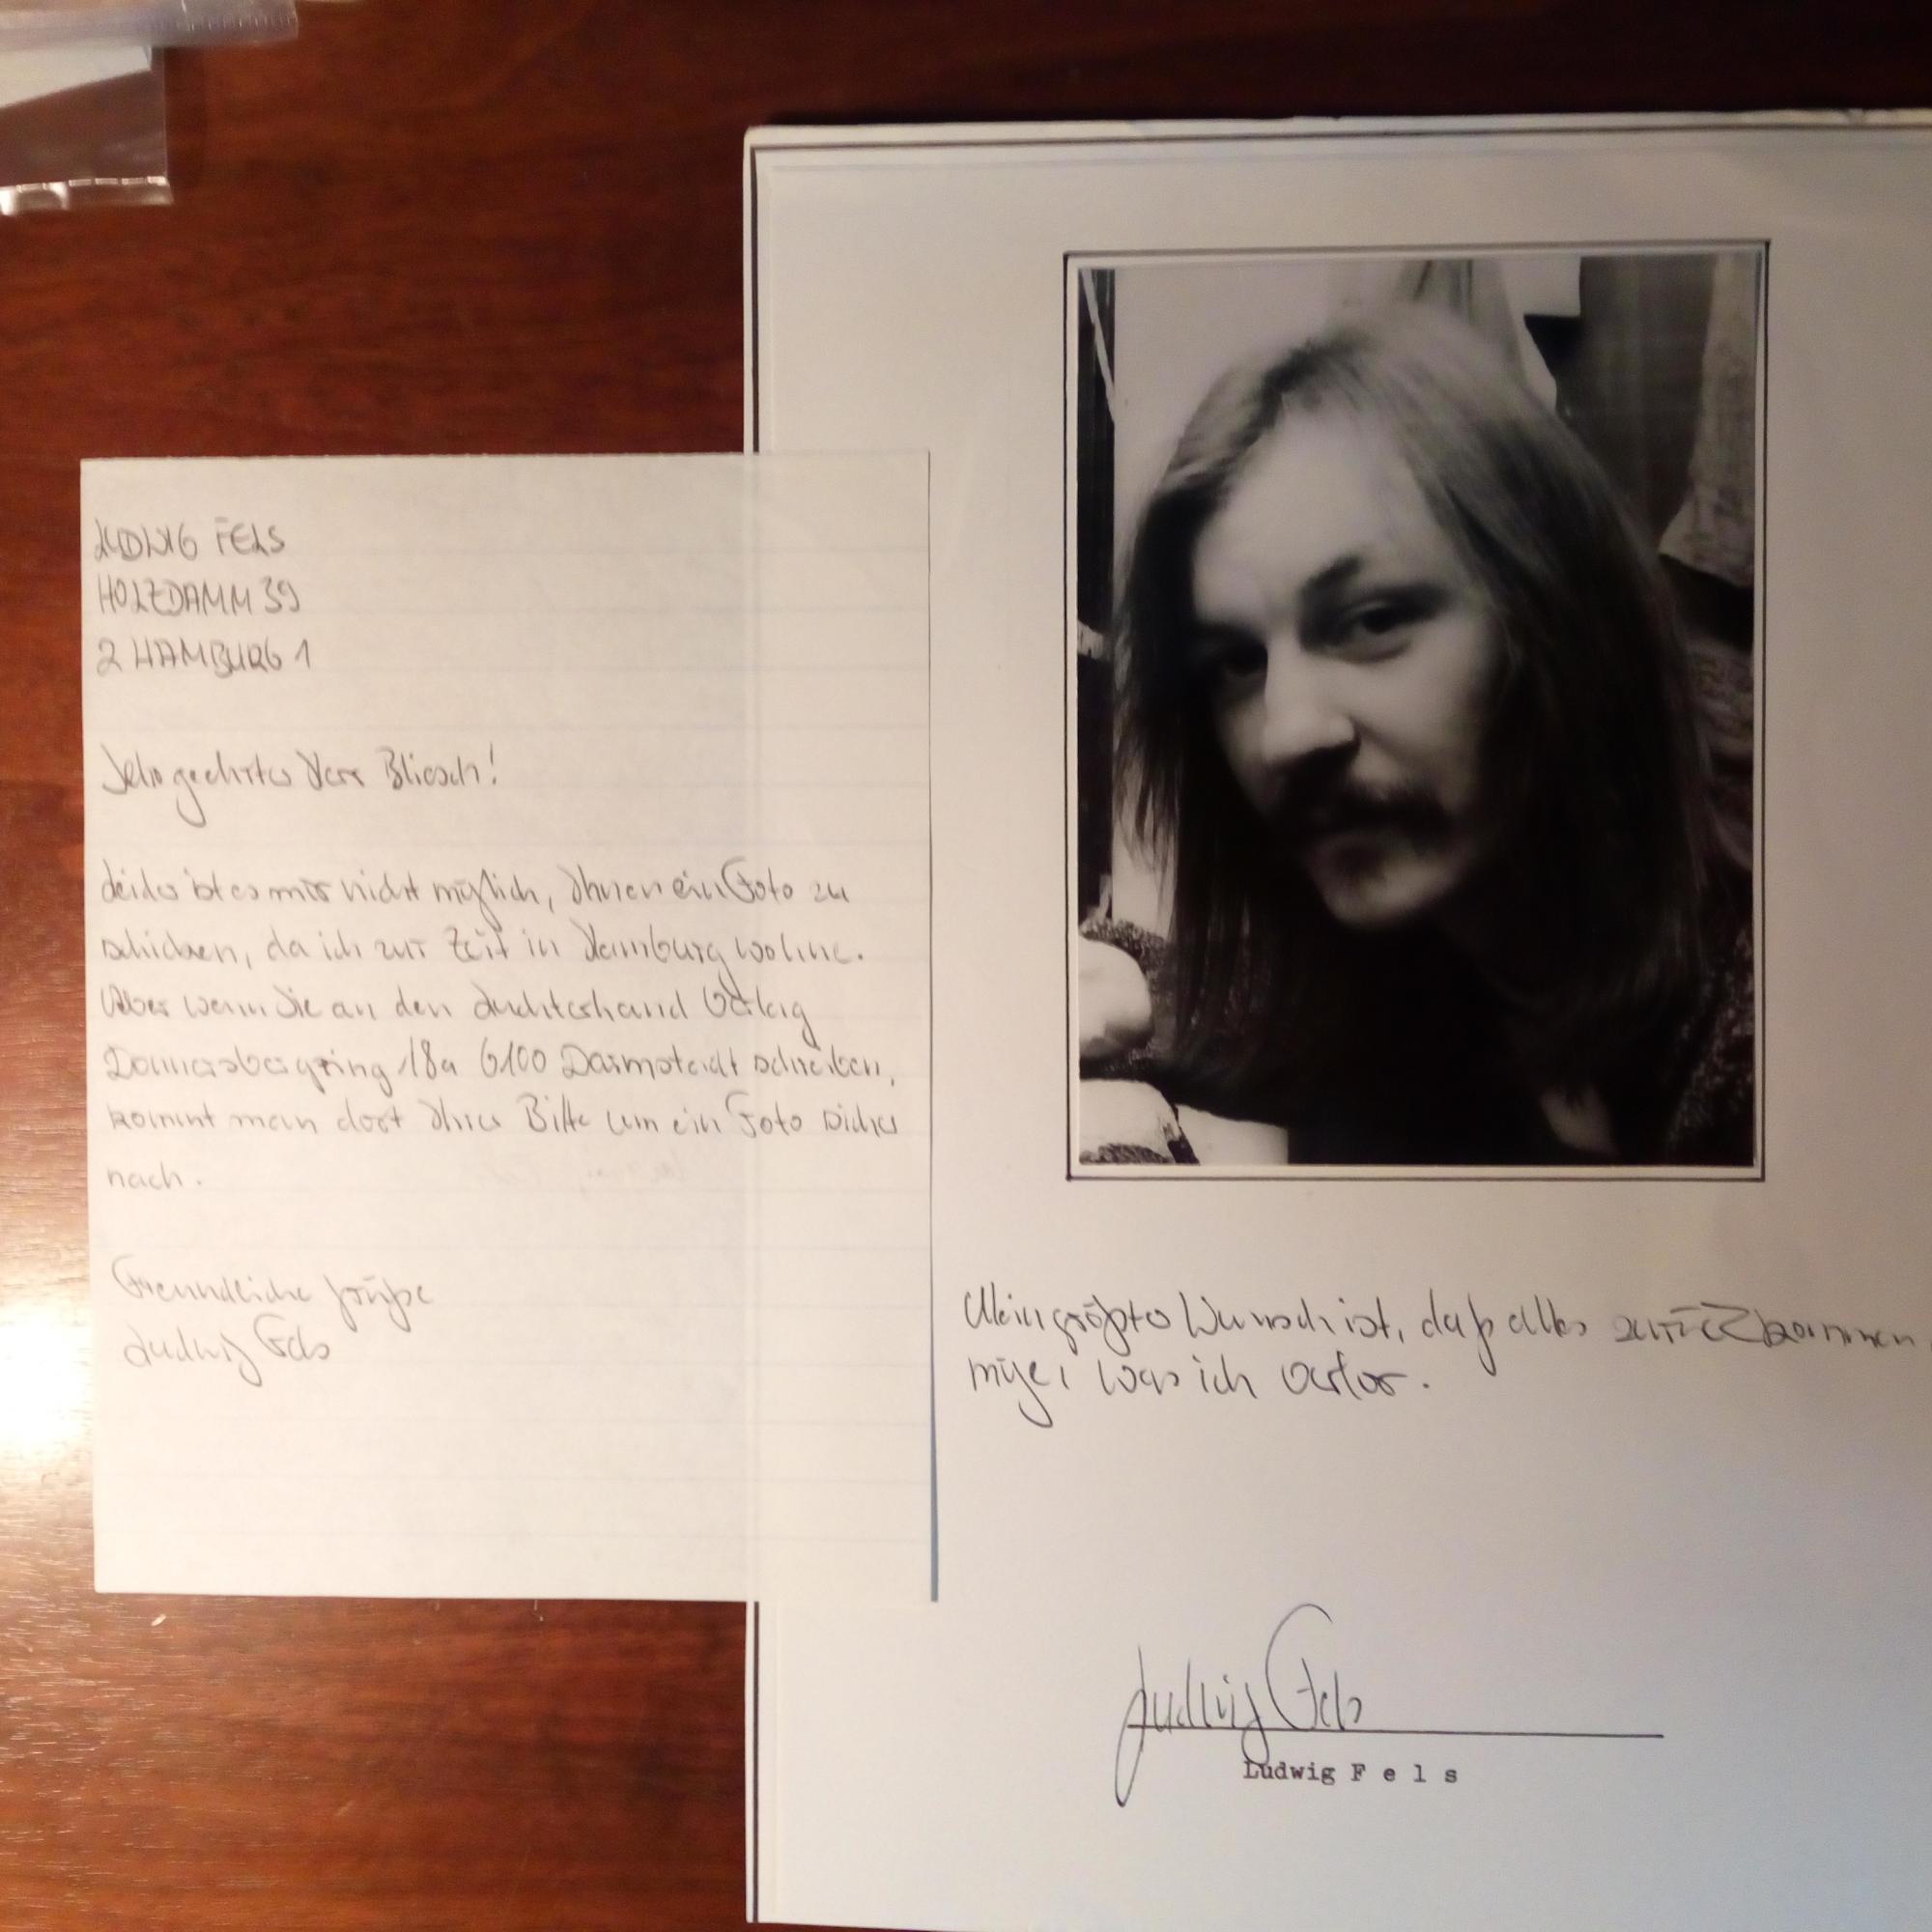 LUDWIG FELS
HOLZDAMM 39
2 HAMBURG 1
Sehr geehrter Herr Bliesch!
Leider ist es mir nicht möglich, Ihnen ein Foto zu
schicken, da ich zur Zeit in Hamburg wohne.
Aber wenn Sie an den Luchterhand Verlag
Donnersbergring 18a 6100 Darmstadt schreiben,
kommt man dort Ihrer Bitte um ein Foto sicher
nach.
Freundliche Grüße
Ludwig Fels
Mein größter Wunsch ist, daß alles zurückkommen
möge, was ich verlor.
Ludwig Fels
Ludwig F e l s